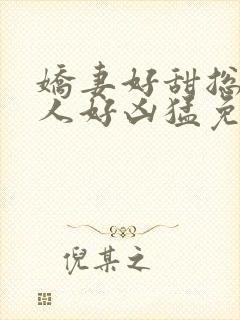 嬌妻好甜揔
人好凶猛免
倪某之